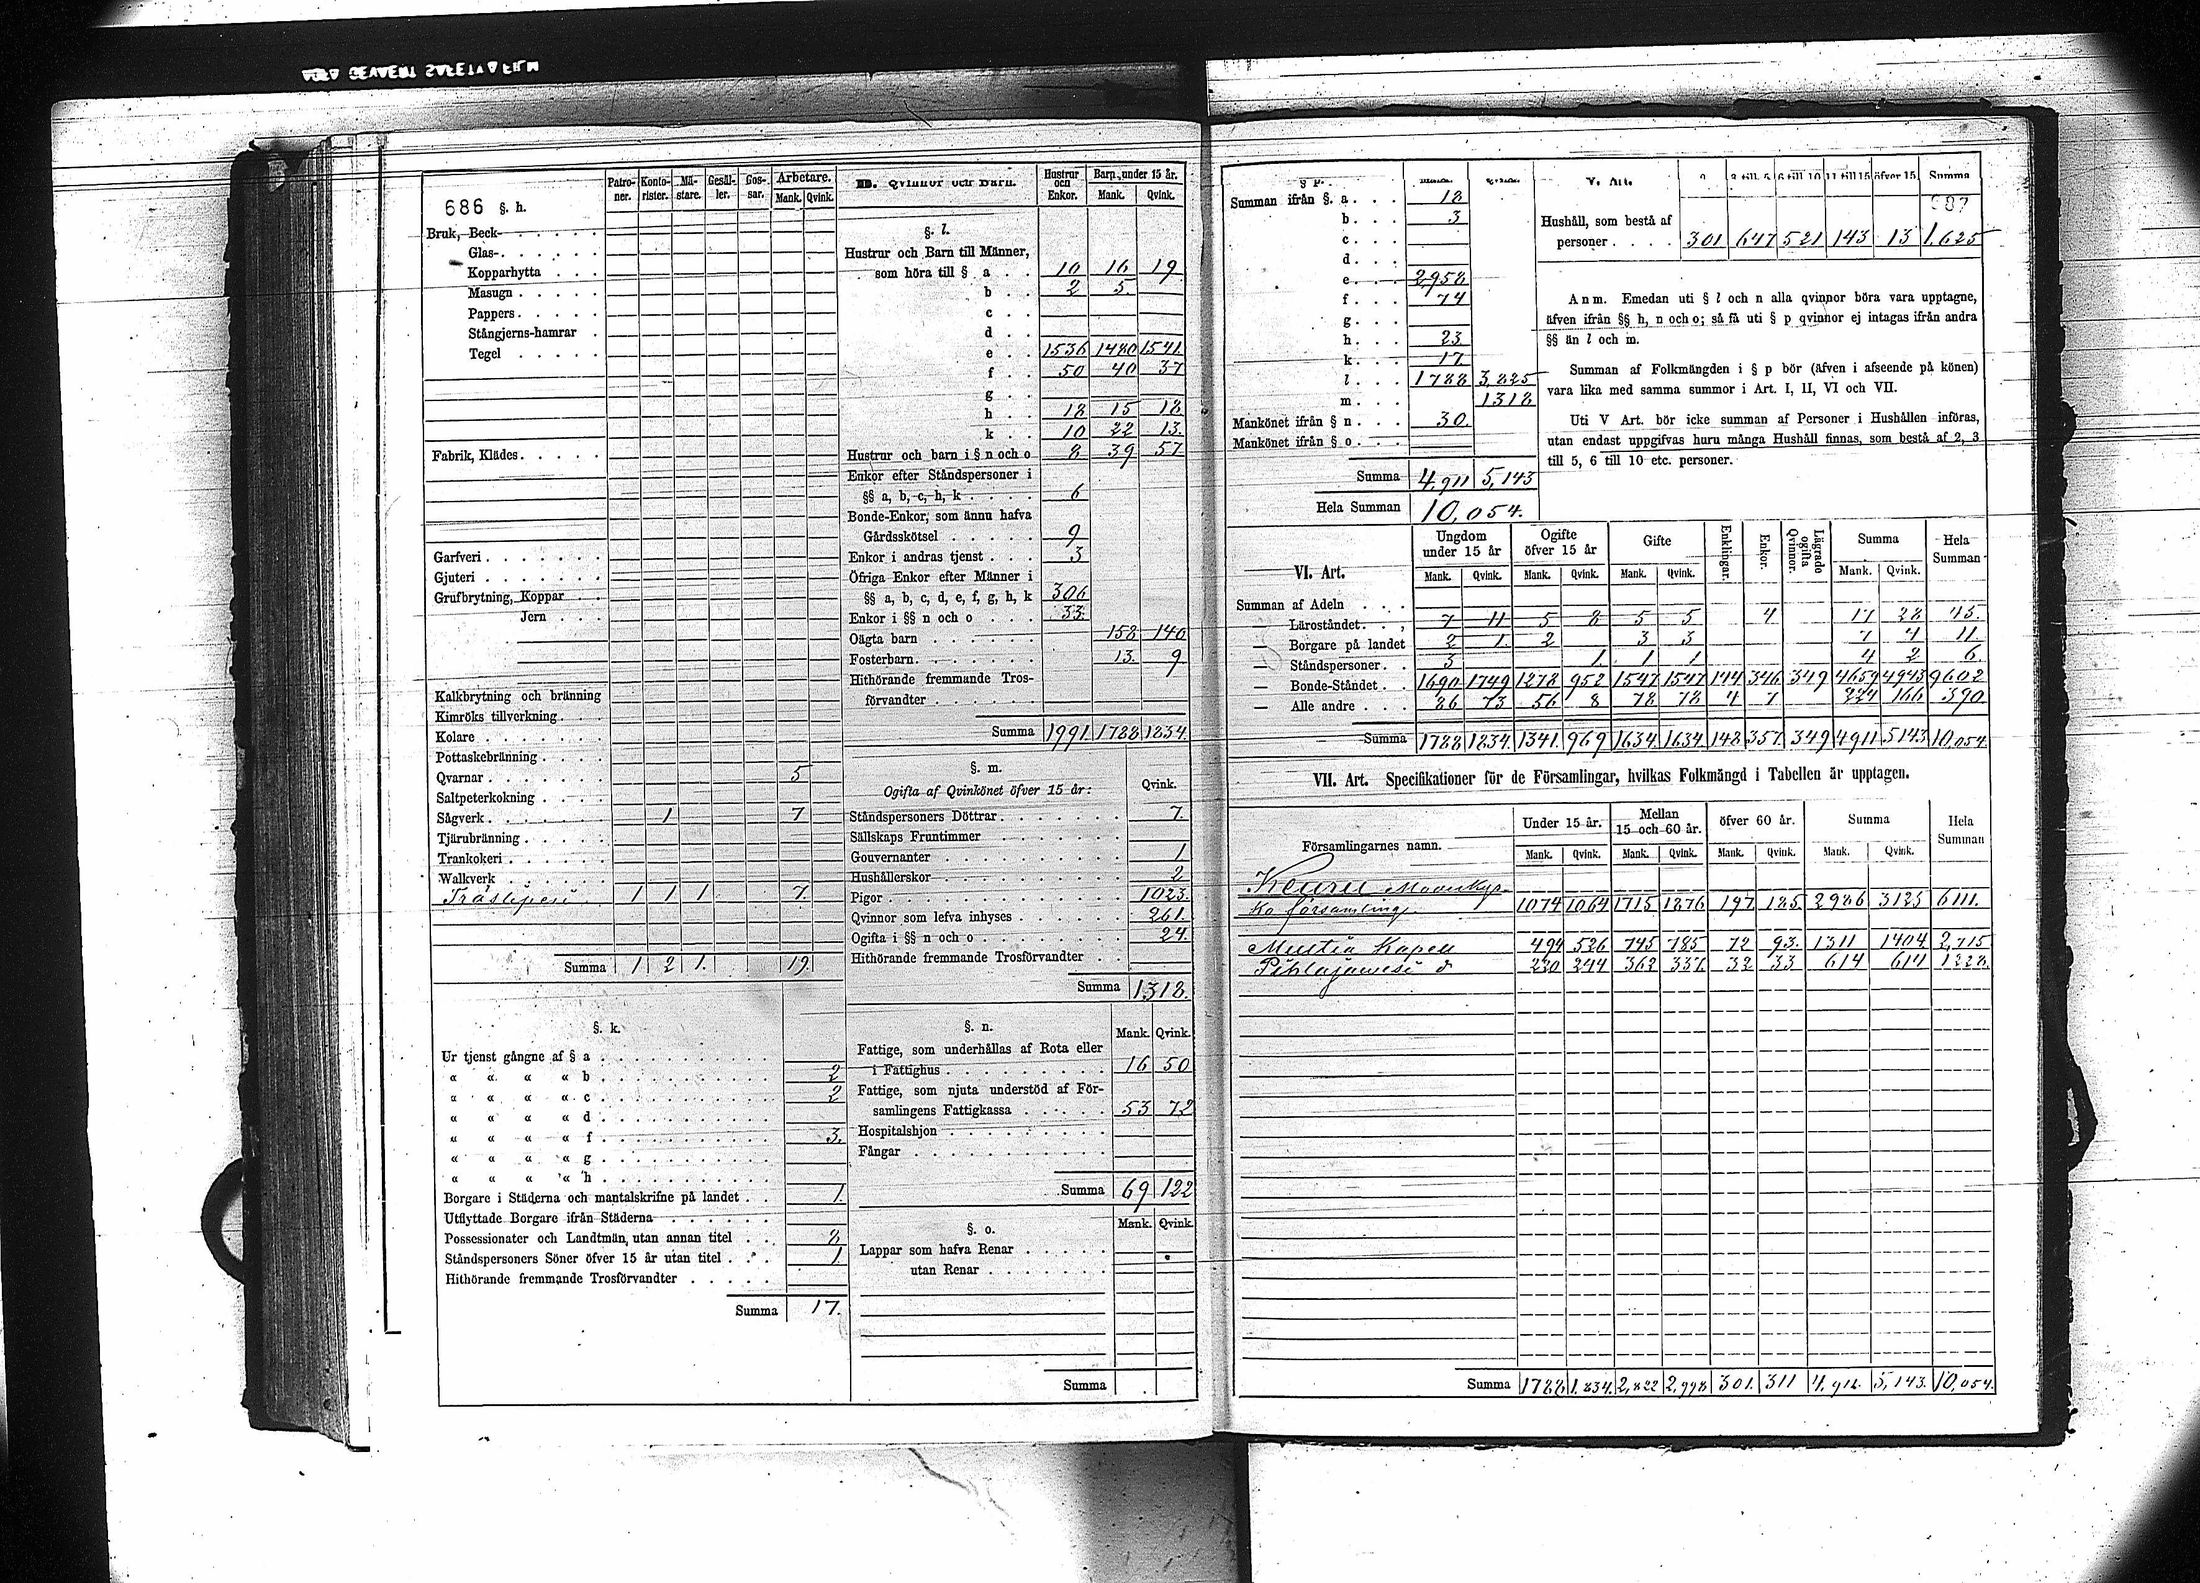 686 §. h.
Patroner. Kontorister. Mästare. Gesäller. Gossar. Arbetare. Mank. Qvink.
Bruk, Beck-
Glas-
Kopparhytta
Masugn
Pappers
Stångjerns-hamrar
Tegel
Fabrik, Klädes
Garfveri
Gjuteri
Grufbrytning, Koppar
Jern
Kalkbrytning och bränning
Kimröks tillverkning
Kolare
Pottaskebränning
Qvarnar 5
Saltpeterkokning
Sågverk 1 7
Tjärubränning
Trankokeri
Walkverk
Träsliperi 1 1 1 7.
Summa 1 2 1. 19.
§. k.
Ur tjenst gångne af § a
« « « « b 2
« « « « c 2
« « « « d
« « « « f 3.
« « « « g
« « « « h
Borgare i Städerna och mantalskrifne på landet 1.
Utflyttade Borgare ifrån Städerna
Possessionater och Landtmän, utan annan titel 8
Ståndspersoners Söner öfver 15 år utan titel 1.
Hithörande fremmande Trosförvandter
Summa 17.
Qvinnor och Barn. Hustrur och Enkor. Barn under 15 år. Mank. Qvink.
§. l.
Hustrur och Barn till Männer,
som höra till § a 10 16 19
b 2 5.
c
d
e 1536 1480 1541.
f 50 40 37
g
h 18 15 18
k 10 22 13.
Hustrur och barn i § n och o 8 39 57
Enkor efter Ståndspersoner i
§§ a, b, c, h, k 6
Bonde-Enkor, som ännu hafva
Gårdsskötsel 9
Enkor i andras tjenst 3
Öfriga Enkor efter Männer i
§§ a, b, c, d, e, f, g, h, k 306
Enkor i §§ n och o 33.
Oägta barn 158 140
Fosterbarn 13. 9
Hithörande fremmande Trosförvandter
Summa 1991. 1788 1834.
§. m.
Ogifta af Qvinkönet öfver 15 år: Qvink.
Ståndspersoners Döttrar 7.
Sällskaps Fruntimmer
Gouvernanter 1
Hushållerskor 2
Pigor 1023.
Qvinnor som lefva inhyses 261.
Ogifta i §§ n och o 24.
Hithörande fremmande Trosförvandter
Summa 1318.
§. n. Mank. Qvink.
Fattige, som underhållas af Rota eller
i Fattighus 16 50
Fattige, som njuta understöd af Församlingens Fattigkassa 53 72
Hospitalshjon
Fångar
Summa 69 122
§. o. Mank. Qvink.
Lappar som hafva Renar
utan Renar
Summa
§ p.
Summan ifrån §. a 18
b 3
c
d
e 2958
f 74
g
h 23
k 17.
l 1788 3,825
m 1318
Mankönet ifrån § n 30.
Mankönet ifrån § o
Summa 4,911 5,143
Hela Summan 10,054.
V. Art. 2 3 till 5 6 till 10 11 till 15 öfver 15 Summa
687
Hushåll, som bestå af
personer 301 647 521 143 13 1,625
Anm. Emedan uti § l och n alla qvinnor böra vara upptagne,
äfven ifrån §§ h, n och o; så få uti § p qvinnor ej intagas ifrån andra
§§ än l och m.
Summan af Folkmängden i § p bör (äfven i afseende på könen)
vara lika med samma summor i Art. I, II, VI och VII.
Uti V Art. bör icke summan af Personer i Hushållen införas,
utan endast uppgifvas huru många Hushåll finnas, som bestå af 2, 3
till 5, 6 till 10 etc. personer.
VI. Art. Ungdom under 15 år Ogifte öfver 15 år Gifte Enklingar. Enkor. Lägrade ogifta Qvinnor. Summa Hela Summan
Mank. Qvink. Mank. Qvink. Mank. Qvink. Mank. Qvink.
Summan af Adeln
— Läroståndet 7 11 5 8 5 5 4 17 28 45.
— Borgare på landet 2 1. 2 3 3 7 4 11.
— Ståndspersoner 3 1. 1 1 4 2 6.
— Bonde-Ståndet 1690 1749 1278 952 1547 1547 144 346 349 4659 4943 9602
— Alle andre 86 73 56 8 78 78 4 7 224 166 390
Summa 1788 1834 1341. 969 1634 1634 148 357. 349 4911 5143 10,054
VII. Art. Specifikationer för de Församlingar, hvilkas Folkmängd i Tabellen är upptagen.
Församlingarnes namn. Under 15 år. Mellan 15 och 60 år. öfver 60 år. Summa Hela Summan
Mank. Qvink. Mank. Qvink. Mank. Qvink. Mank. Qvink.
Keuru Moderkyr-
ko församling 1074 1064 1715 1876 197 185 2986 3125 6111.
Multia Kapell 494 526 745 785 72 93. 1311 1404 2,715
Pihlajavesi d 220 244 362 337. 32 33 614 614 1228.
Summa 1788 1,834. 2,822 2,998 301. 311 4,911. 5,143. 10,054.